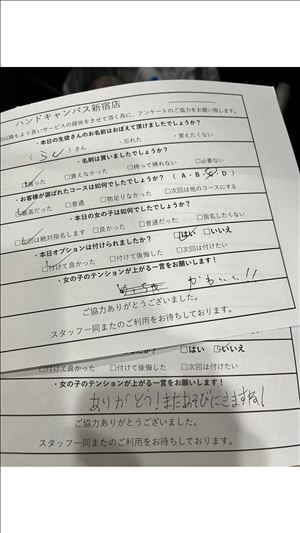 ハンドキャンパス新宿店
・本日の生徒さんのお名前はおぼえて頂けましたでしょうか？
さん ・忘れた ・覚えたくない
・名刺は貰いましたでしょうか？
貰った □貰えなかった □持って帰れない □必要ない
・お客様が選ばれたコースは如何でしたでしょうか？（A・B・C・D）
□普通 □物足りなかった □次回は他のコースにする
・本日の女の子は如何でしたでしょうか？
次回は絶対指名します □良かった □普通だった □指名したくない
・本日オプションは付けられましたか？ □はい □いいえ
□付けて良かった □付けて後悔した □次回は付けたい
・女の子のテンションが上がる一言をお願いします！
かわいい!!
ご協力ありがとうございました。
スタッフ一同またのご利用をお待ちしております。
□はい □いいえ
□付けて良かった □付けて後悔した □次回は付けたい
・女の子のテンションが上がる一言をお願いします！
ありがとう！またあそびにきますね！
ご協力ありがとうございました。
スタッフ一同またのご利用をお待ちしております。